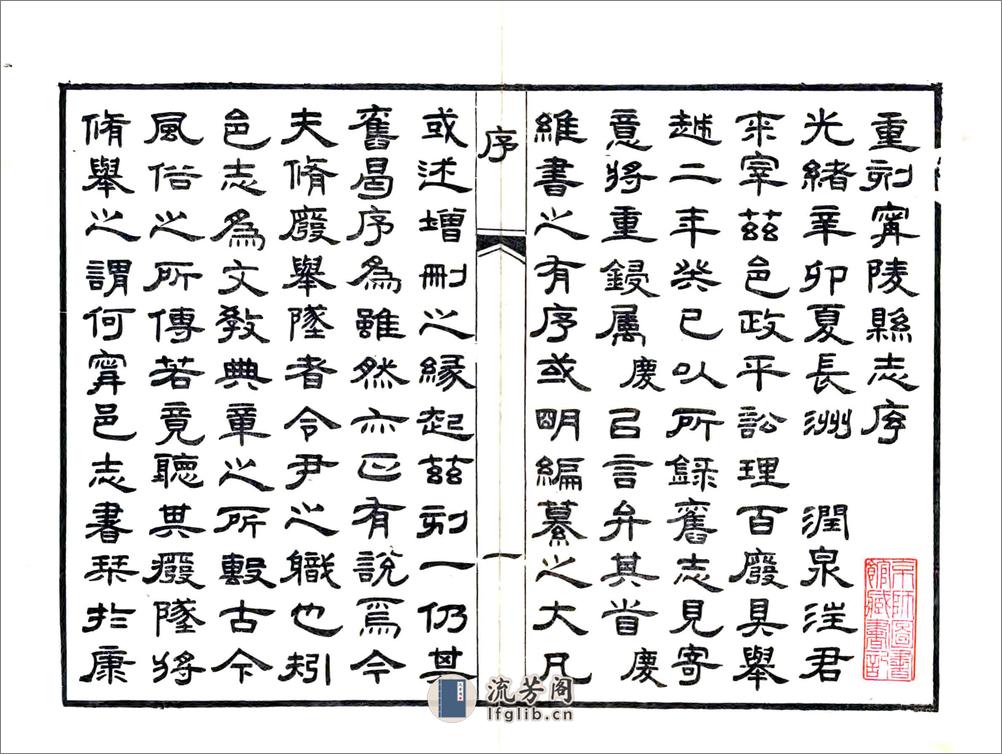 重刻寧陵縣志序
光緒辛卯夏長洲 潤泉汪君
來宰茲邑政平訟理百廢具舉
越二年癸巳以所錄舊志見寄
意將重鋟屬慶㠯言弁其首慶
維書之有序或明編纂之大凡
序 一
或述增刪之緣起茲刻一仍其
舊曷序為雖然亦正有說焉今
夫脩廢舉墜者令尹之職也矧
邑志為文教典章之所繫古今
風俗之所傳若竟聽其廢墜將
脩舉之謂何寧邑志書栞於康
京師圖書
館藏書記
流芳阁
lfglib.cn